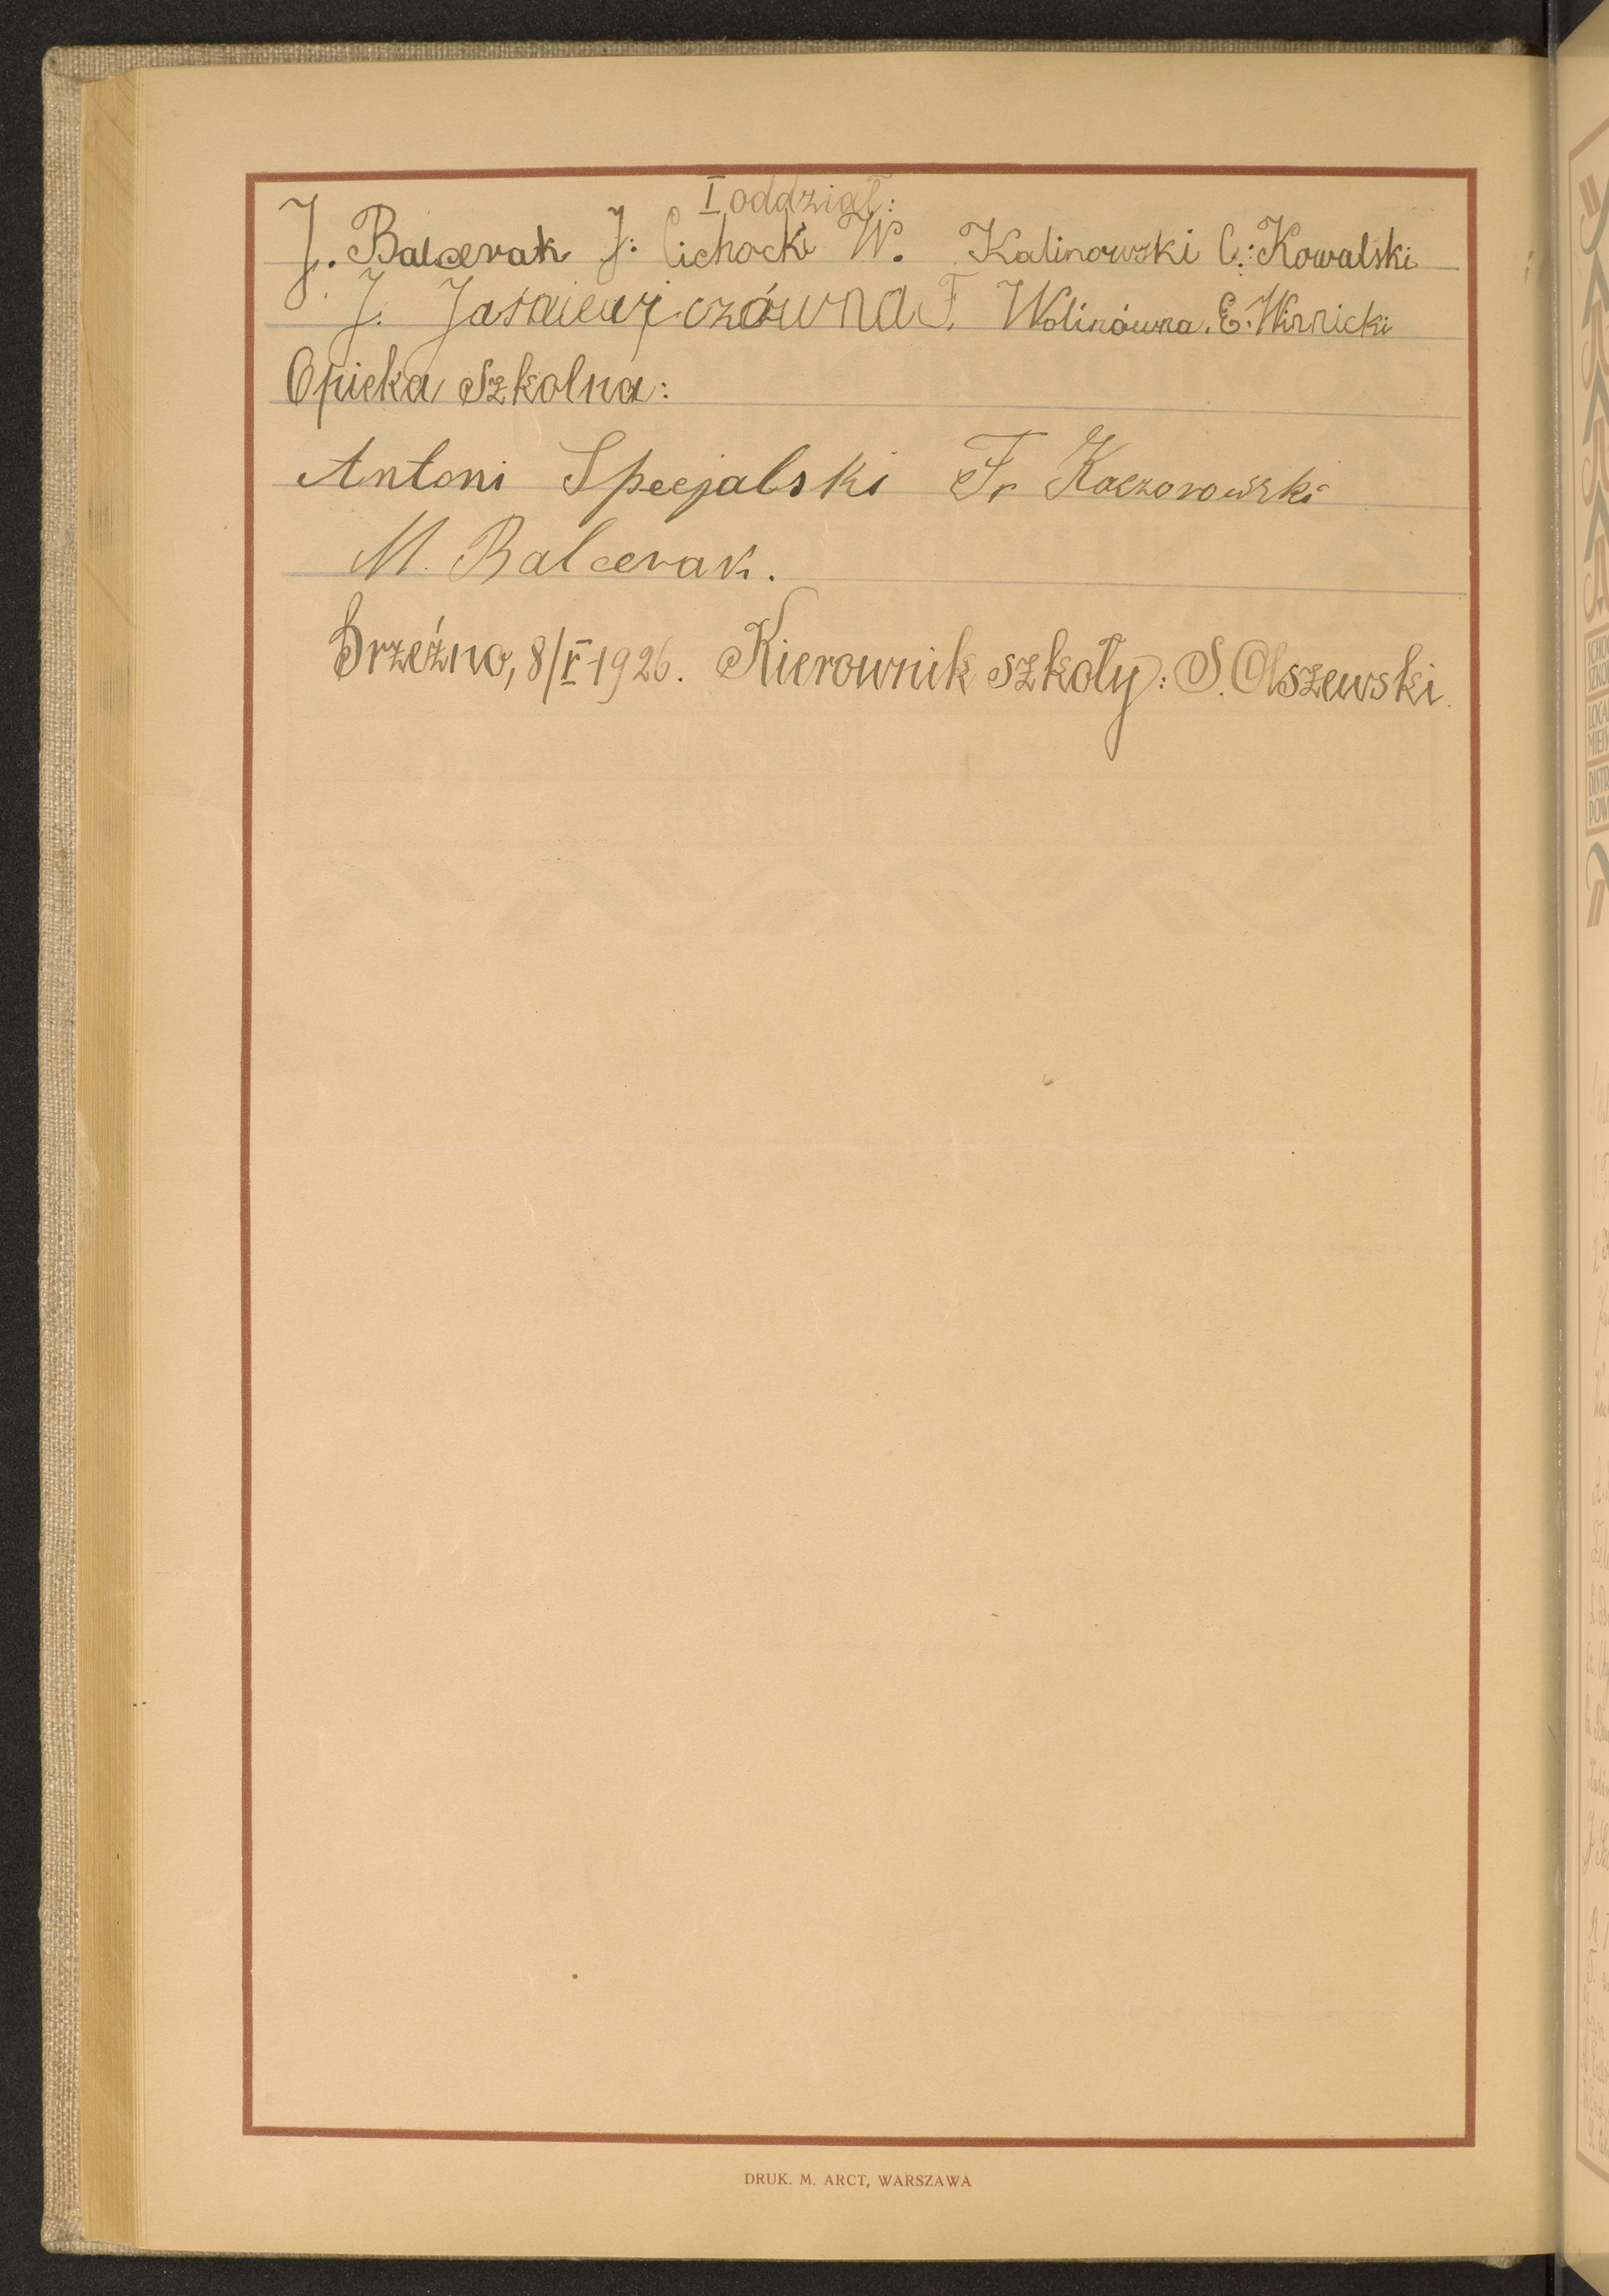 I oddział:
J. Balcerak J: Cichocki W. Kalinowski C.: Kowalski
J. Jaśkiewiczówna F. Wolinówna. E. Winnicki
Opieka Szkolna:
Antoni Specjalski Fr Kaczorowski
M. Balcerak.
Brzeźno, 8/V 1926. Kierownik szkoły: S. Olszewski.
DRUK. M. ARCT, WARSZAWA